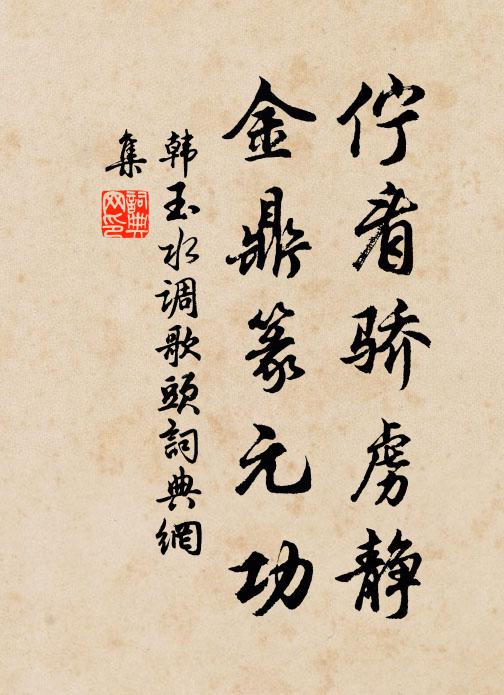 佇看骄虏静
金鼎篆元功
韩玉水调歌頭詞典網
集
詞典
网印